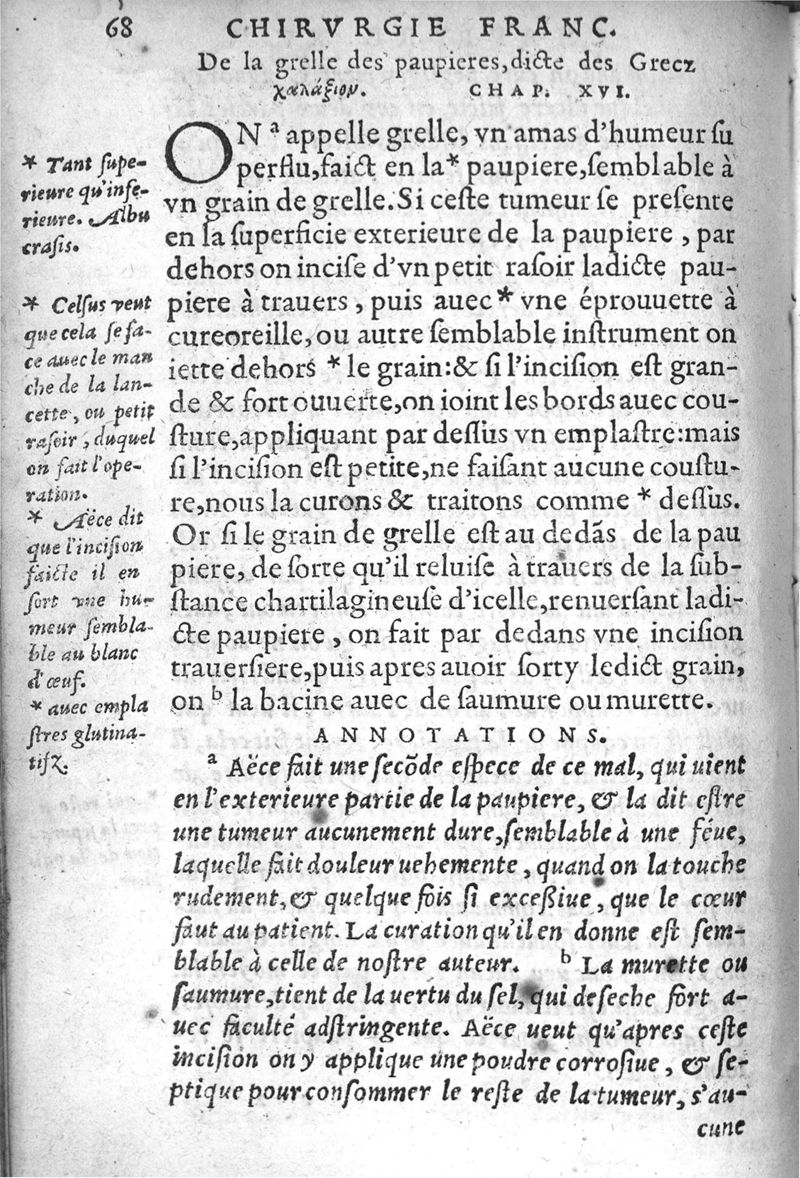 68 CHIRVRGIE FRANC.
De la grelle des paupieres, dicte des Grecz
χαλάξιον. CHAP. XVI.
ON ᵃ appelle grelle, vn amas d'humeur ſu
perflu, faict en la* paupiere, ſemblable à
vn grain de grelle. Si ceſte tumeur ſe preſente
en la ſuperficie exterieure de la paupiere, par
dehors on inciſe d'vn petit raſoir ladicte pau-
piere à trauers, puis auec* vne éprouuette à
cureoreille, ou autre ſemblable inſtrument on
iette dehors * le grain: & ſi l'inciſion eſt gran-
de & fort ouuerte, on ioint les bords auec cou-
ſture, appliquant par deſſus vn emplaſtre: mais
ſi l'inciſion eſt petite, ne faiſant aucune couſtu-
re, nous la curons & traitons comme * deſſus.
Or ſi le grain de grelle eſt au dedãs de la pau
piere, de ſorte qu'il reluiſe à trauers de la ſub-
ſtance chartilagineuſe d'icelle, renuerſant ladi-
cte paupiere, on fait par dedans vne inciſion
trauerſiere, puis apres auoir ſorty ledict grain,
on ᵇ la bacine auec de ſaumure ou murette.
* Tant ſupe-
rieure qu'infe-
rieure. Albu
craſis.
* Celſus veut
que cela ſe fa-
ce auec le man
che de la lan-
cette, ou petit
raſoir, duquel
on fait l'ope-
ration.
* Aëce dit
que l'inciſion
faicte il en
ſort vne hu-
meur ſembla-
ble au blanc
d'œuf.
* auec empla
ſtres glutina-
tifz.
ANNOTATIONS.
ᵃ Aëce fait une ſecõde eſpece de ce mal, qui uient
en l'exterieure partie de la paupiere, & la dit eſtre
une tumeur aucunement dure, ſemblable à une féue,
laquelle fait douleur uehemente, quand on la touche
rudement, & quelque fois ſi exceßiue, que le cœur
faut au patient. La curation qu'il en donne eſt ſem-
blable à celle de noſtre auteur. ᵇ La murette ou
ſaumure, tient de la uertu du ſel, qui deſeche fort a-
uec faculté adſtringente. Aëce ueut qu'apres ceſte
inciſion on y applique une poudre corroſiue, & ſe-
ptique pour conſommer le reſte de la tumeur, s'au-
cune